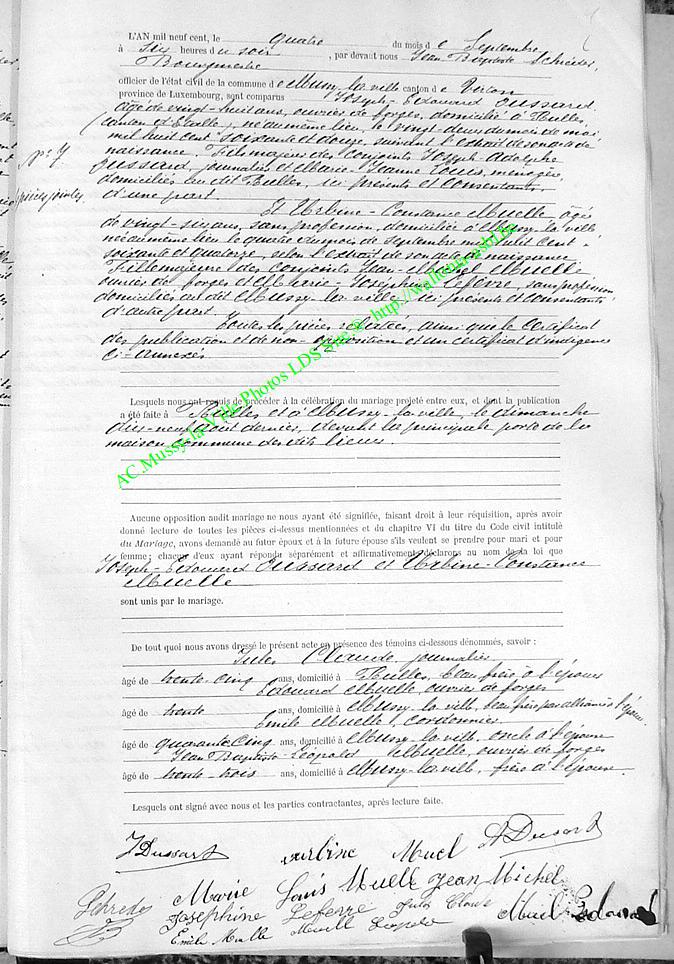 L'AN mil neuf cent, le quatre du mois de Septembre
à six heures du soir, par devant nous Jean Baptiste Schréder,
Bourgmestre
officier de l'état civil de la commune de Mussy-la-ville canton de Virton
province de Luxembourg, sont comparus Joseph-Edouard Dussard
âgé de vingt-huit ans, ouvrier de forges, domicilié à Rulles,
(canton d'Etalle), né au même lieu, le vingt-deux du mois de mai
mil huit cent soixante et douze, suivant l'extrait de son acte de
naissance. Fils majeur des conjoints Joseph-Adolphe
Dussard, journalier et Marie-Jeanne Louis, ménagère,
domiciliés au dit Rulles, ici présents et consentants,
d'une part.
N° 7
pièces jointes
Et Urbine-Constance Muelle âgée
de vingt-six ans, sans profession, domiciliée à Mussy-la-ville,
née au même lieu le quatre du mois de septembre mil huit cent-
soixante et quatorze, selon l'extrait de son acte de naissance.
Fille majeure des conjoints Jean-Michel Muelle
ouvrier de forges et Marie-Joséphine Leferre, sans profession
domiciliés au dit Mussy-la-ville, ici présents et consentants
d'autre part.
Toutes les pièces relatées, ainsi que le certificat
des publication et de non-opposition et un certificat d'indigence
ci-annexés
Lesquels nous ont requis de procéder à la célébration du mariage projeté entre eux, et dont la publication
a été faite à Rulles et à Mussy-la-ville, le dimanche
dix-neuf août dernier, devant la principale porte de la
maison commune des dits lieux.
AC.Mussy-la-Ville Photos LDS Site @ http://wallonia-asbl.be
Aucune opposition audit mariage ne nous ayant été signifiée, faisant droit à leur réquisition, après avoir
donné lecture de toutes les pièces ci-dessus mentionnées et du chapitre VI du titre du Code civil intitulé
du Mariage, avons demandé au futur époux et à la future épouse s'ils veulent se prendre pour mari et pour
femme ; chacun d'eux ayant répondu séparément et affirmativement, déclarons au nom de la loi que
Joseph-Edouard Dussard et Urbine-Constance
Muelle
sont unis par le mariage.
De tout quoi nous avons dressé le présent acte en présence des témoins ci-dessous dénommés, savoir :
Jules Claude, journalier
âgé de trente-cinq ans, domicilié à Rulles, beau frère à l'époux
Edouard Muelle, ouvrier de forges
âgé de trente ans, domicilié à Mussy-la-ville, beau frère par alliance à l'époux.
Emile Muelle, cordonnier
âgé de quarante cinq ans, domicilié à Mussy-la-ville, oncle à l'épouse
Jean Baptiste-Léopold Muelle, ouvrier de forges
âgé de trente-trois ans, domicilié à Mussy-la-ville, frère à l'épouse.
Lesquels ont signé avec nous et les parties contractantes, après lecture faite.
J Dussart urbine Muel A Dusart
Marie Louis Muelle Jean Michel
Schréder Joséphine Leferre Jules Claude Muel Edouard
Emile Muelle Muelle Léopold